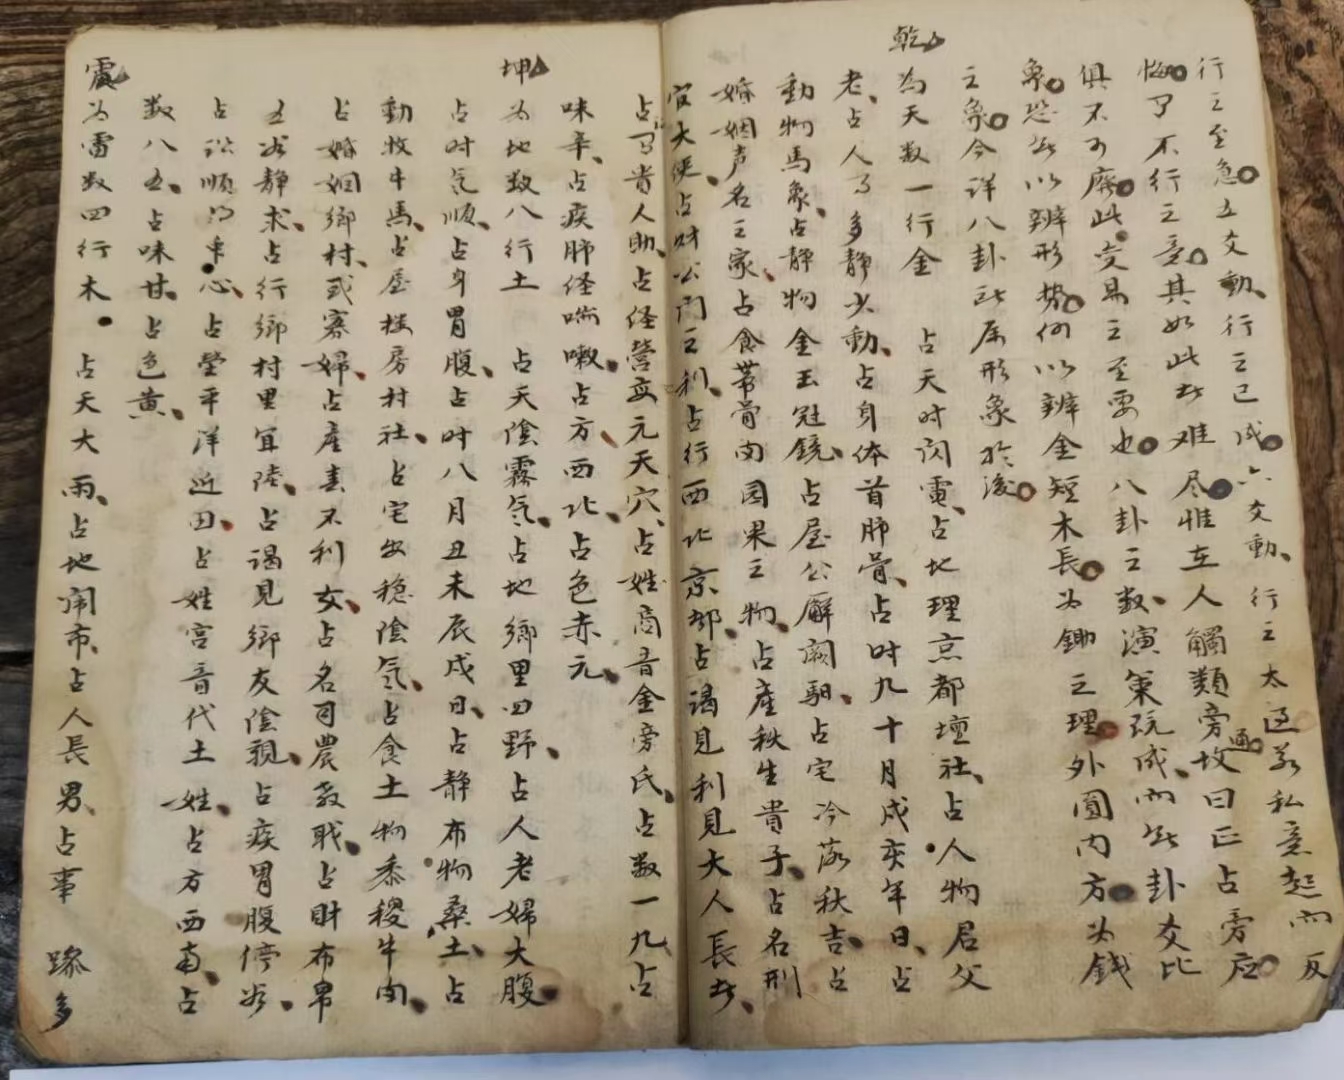 行之至急五爻動行之已成六爻動行之太過若私意起而反
悔了不行之意其如此者难尽惟在人觸類旁通故曰正占旁应
俱不可廢此交易之至要也八卦之数演策既成而無卦爻比
象恐無以辨形势何以辨金短木長为鋤之理外圓内方为錢
之象今详八卦所属形象於後
乾
为天数一行金 占天时闪電占地理京都壇社占人物君父
老占人多静少動占身体首肺骨占时九十月戌亥年日占
動物馬象占静物金玉冠鏡占屋公廨占宅冷落秋吉占
婚姻声名之家占食带骨肉园果之物占產秋生貴子占名刑
官大侯占财公门之利占行西北京都占谒見利見大人長者
占貴人助占经營元天穴占姓商音金旁氏占数一九占
味辛占疾肺经喘嗽占方西北占色赤元
坤
为地数八行土 占天陰霧气占地鄉里田野占人老婦大腹
占时气順占身胃腹占时八月丑未辰戌日占静布物桑土占
動牧牛馬占屋楼房村社占宅安稳陰氣占食土物黍稷牛肉
占婚姻鄉村或寡婦占產春不利女占名司農教职占财布帛
五穀静求占行鄉村里宜陸占谒見鄉友陰親占疾胃腹停
占訟順心占塋平洋近田占姓宫音代土姓占方西南占
数八五占味甘占色黄
震
为雷数四行木 占天大雨占地闹市占人長男占事 多